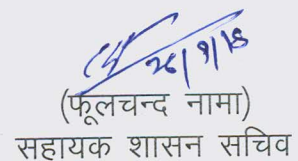 26/9/18
(फूलचन्द नामा)
सहायक शासन सचिव